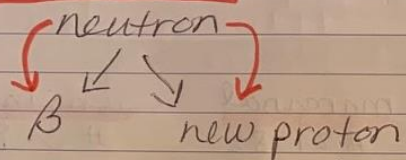 neutron
β new proton